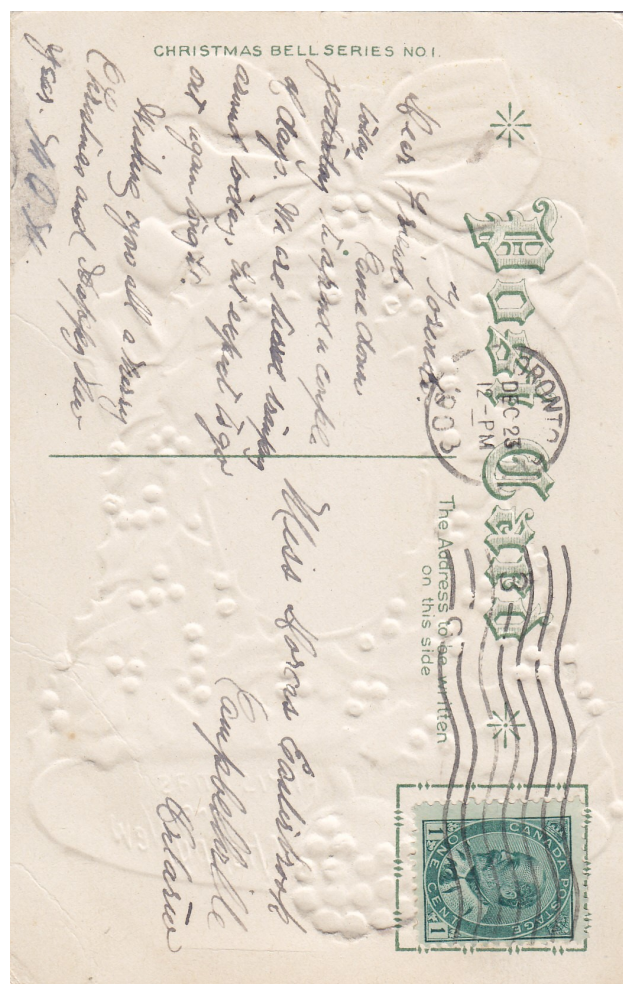 CHRISTMAS BELL SERIES NO. 1.
Post Card
The Address to be written
on this side
TORONTO
DEC 23
12-PM
1903
B
C
CANADA POSTAGE
ONE CENT
1 1
Toronto.
Dear Friend.
Came down
today
yesterday to spend a couple
of days. We are
around today, but expect to go
out again tonight.
Wishing you all a Merry
Christmas and Happy New
Year.
Miss
Campbellville
Ontario